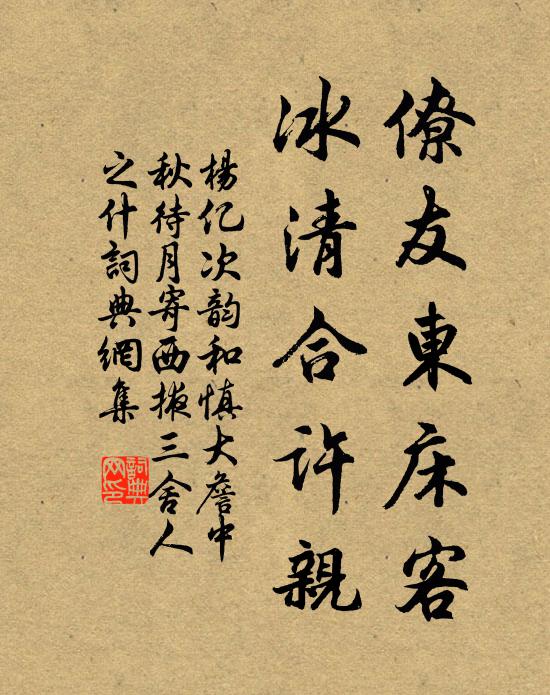 僚友東床客
冰清合許親
楊億次韵和慎大詹中
秋待月寄西掖三舍人
之什詞典網集
詞典網印